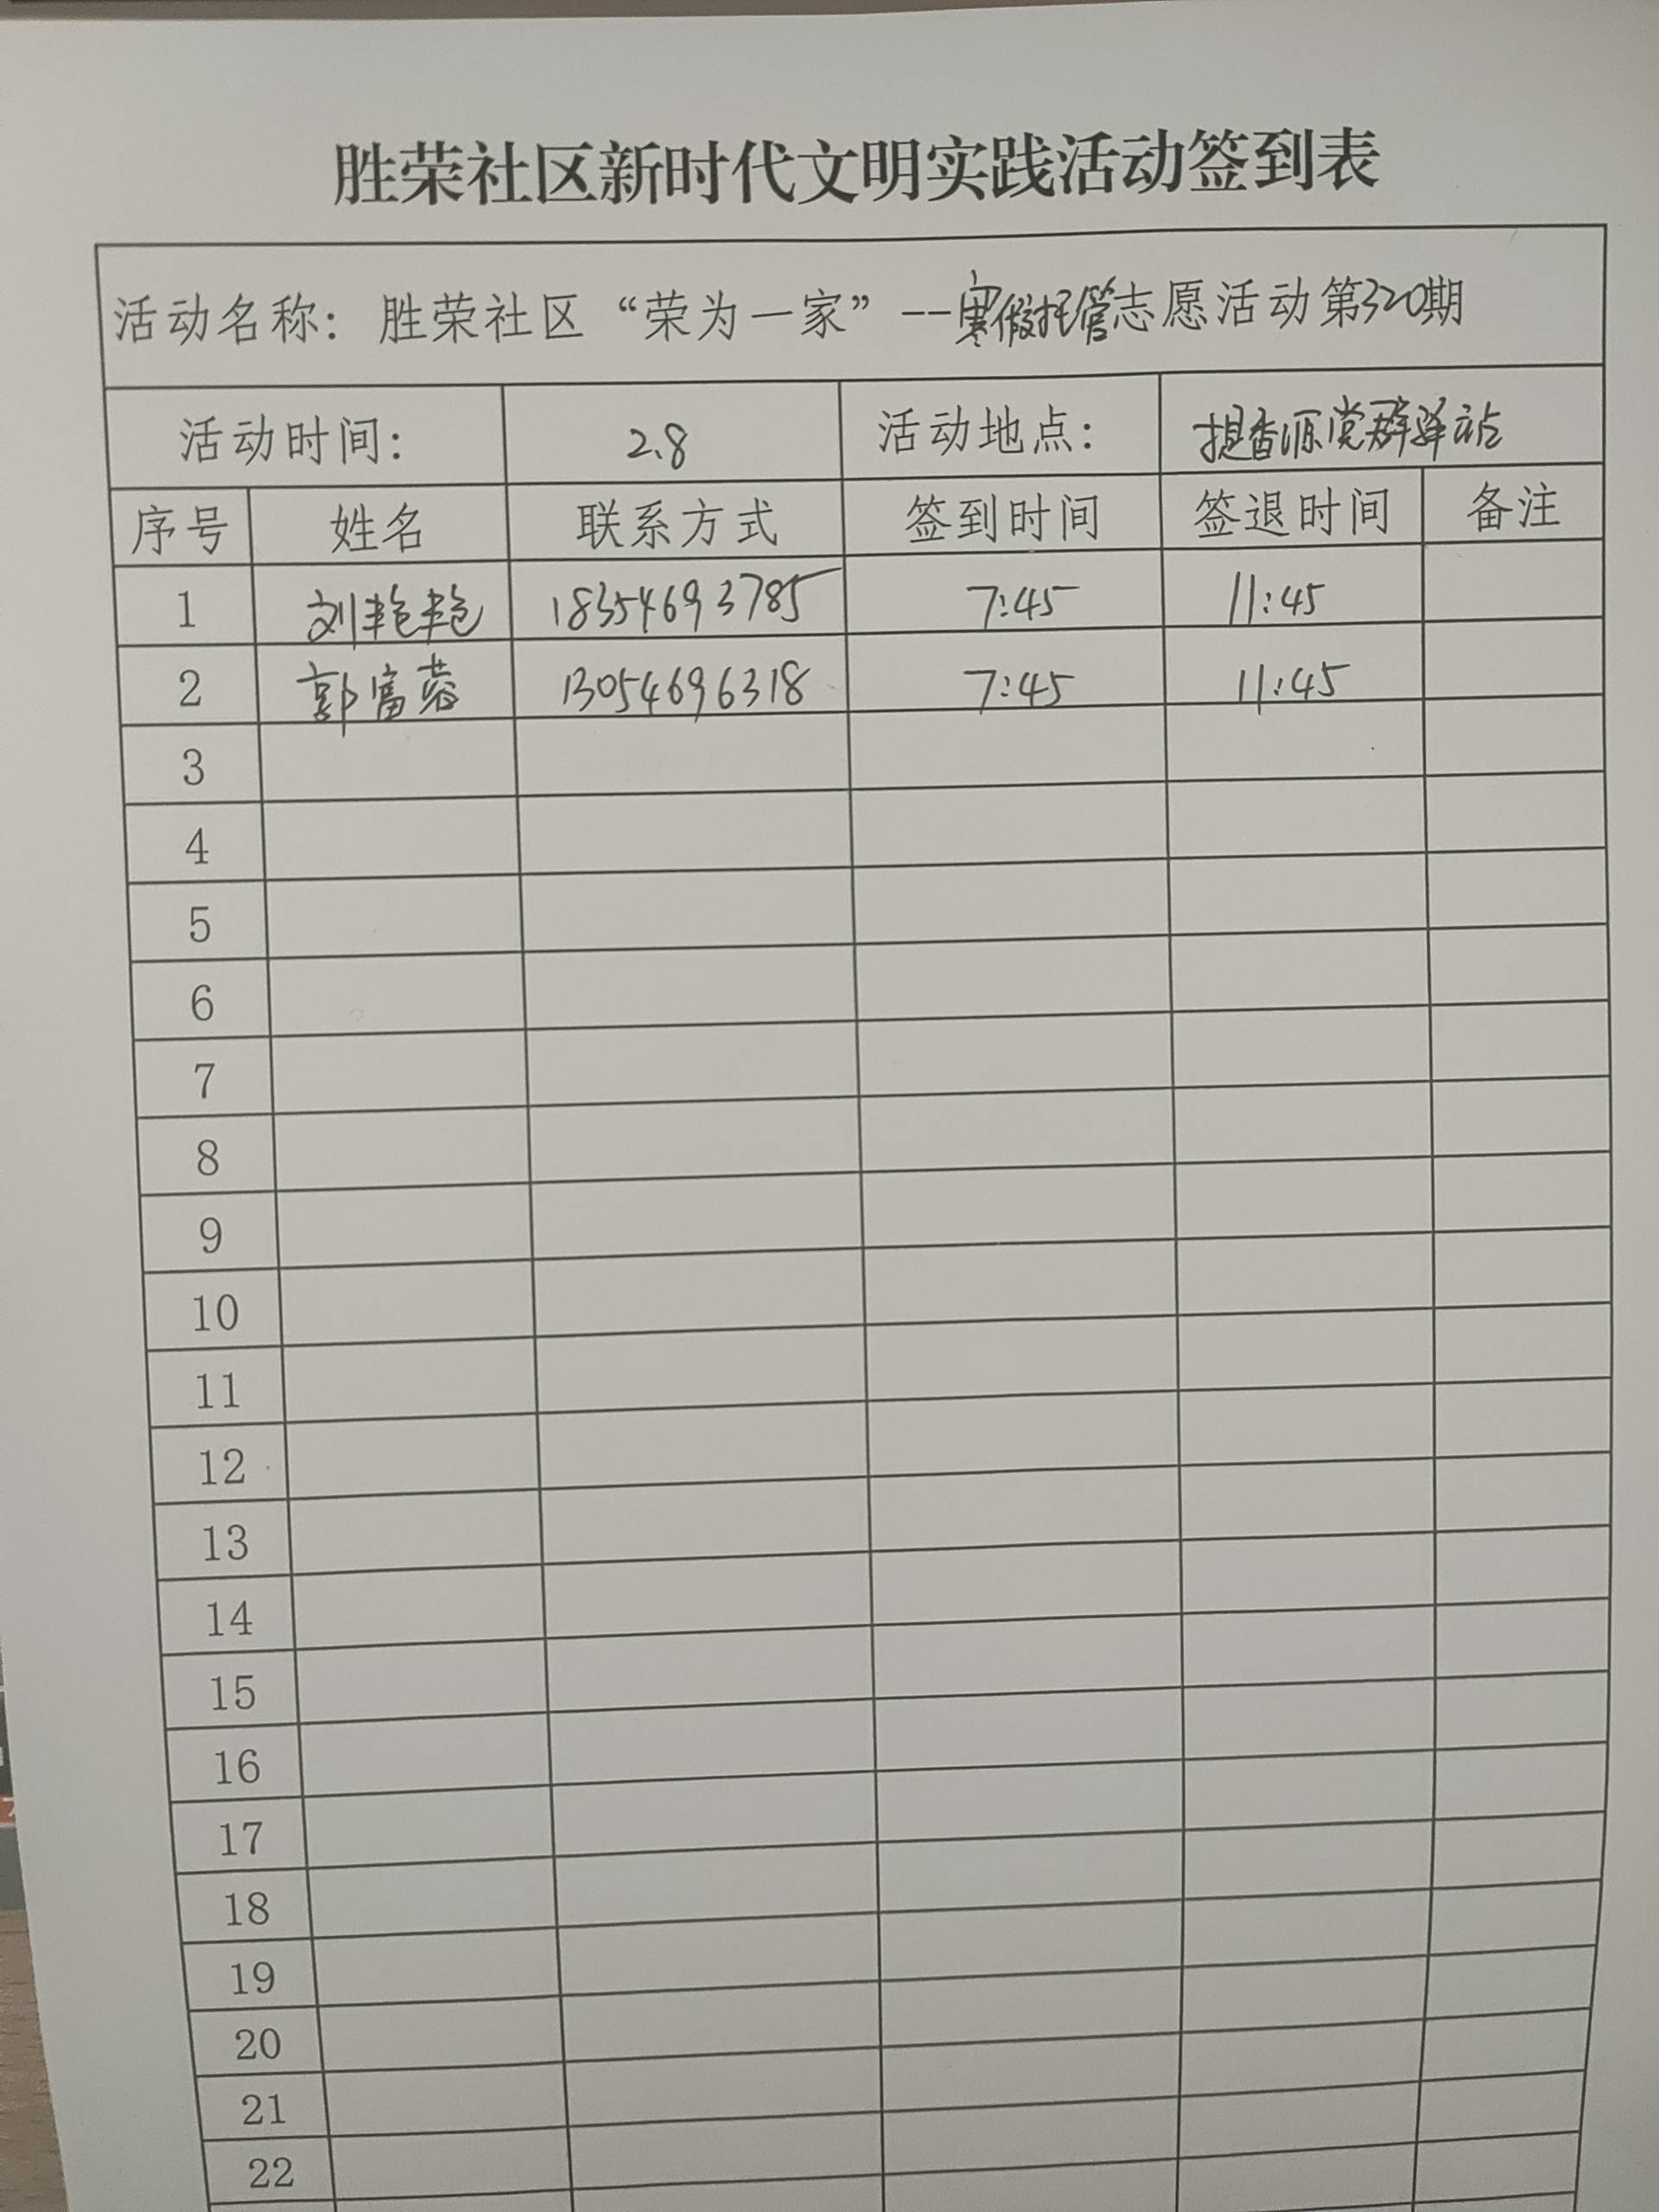 胜荣社区新时代文明实践活动签到表
活动名称：胜荣社区“荣为一家”--寒假托管志愿活动第320期
活动时间： 2.8 活动地点： 提香源党群驿站
序号 姓名 联系方式 签到时间 签退时间 备注
1 刘艳艳 18354693785 7:45 11:45
2 郭富蓉 13054696318 7:45 11:45
3
4
5
6
7
8
9
10
11
12
13
14
15
16
17
18
19
20
21
22